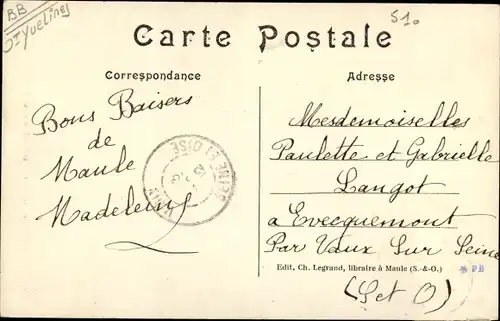 BB
Yvelines
510
Carte Postale
Correspondance
Adresse
Bons Baisers
de
Maule
Madeleine
SEINE ET OISE
Mesdemoiselles
Paulette et Gabrielle
Langot
a Evecquemont
Par Vaux Sur Seine
(S et O)
Edit, Ch. Legrand, libraire à Maule (S.-&-O.)
PB